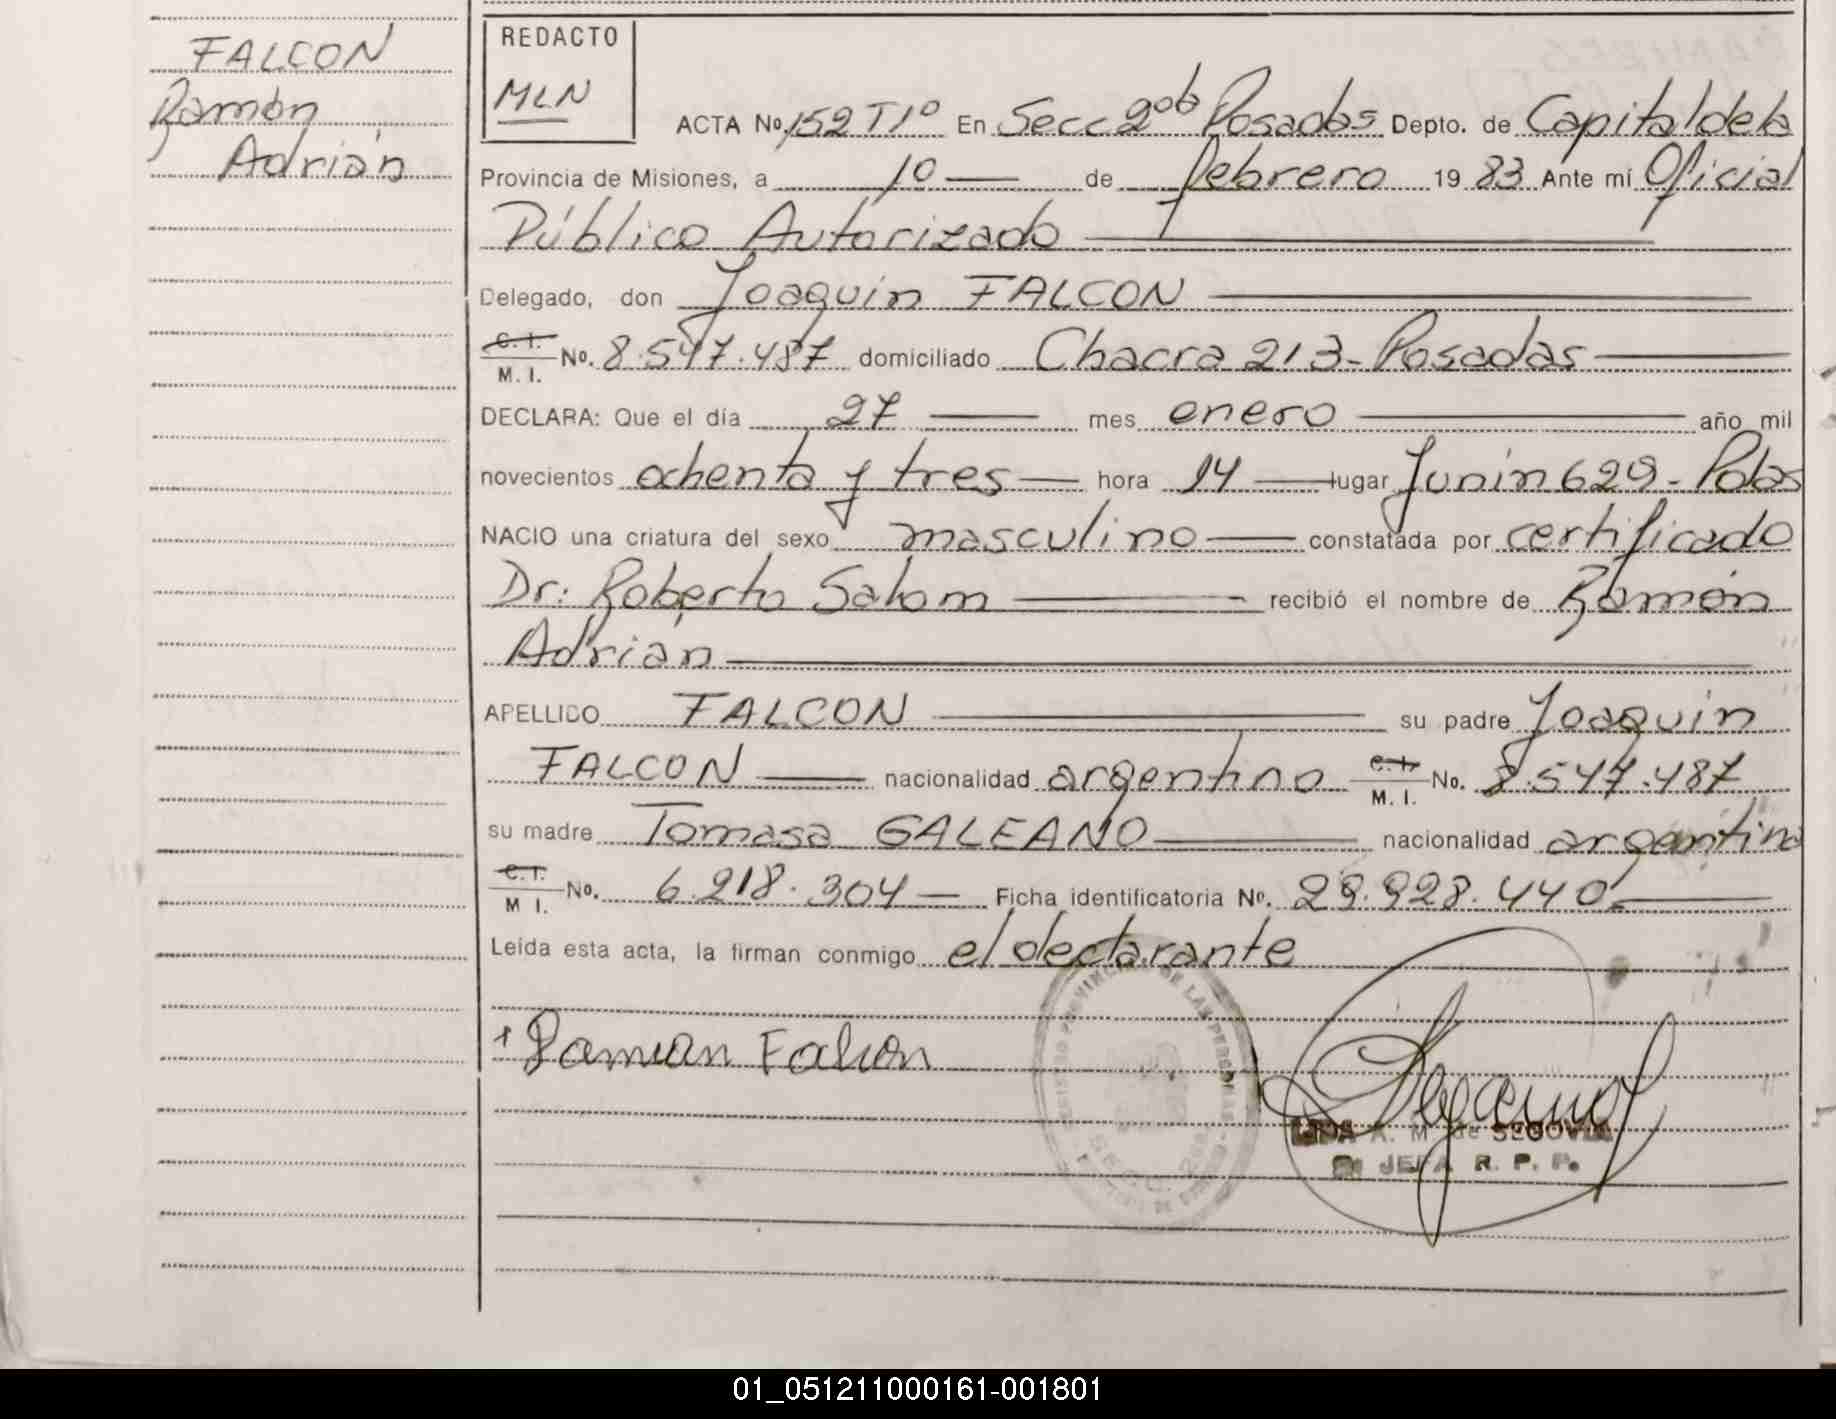 FALCON
Ramón
Adrián
REDACTO
MLN
ACTA No. 152 T1º En Secc 2ª Posadas Depto. de Capital de la
Provincia de Misiones, a 10 de febrero 1983 Ante mí Oficial
Público Autorizado
Delegado, don Joaquin FALCON
C. I.
M. I. No. 8.547.487 domiciliado Chacra 213- Posadas
DECLARA: Que el día 27 mes enero año mil
novecientos ochenta y tres hora 14 lugar Junín 629 - Pdas
NACIO una criatura del sexo masculino constatada por certificado
Dr: Roberto Salom recibió el nombre de Ramón
Adrián
APELLIDO FALCON su padre Joaquin
FALCON nacionalidad argentino C. I. M. I. No. 8.547.487
su madre Tomasa GALEANO nacionalidad argentina
C. I.
M I. No. 6.218.304 Ficha identificatoria No. 29.928.440
Leída esta acta, la firman conmigo el declarante
Falcon
A. M de SEGOVIA
JEFA R. P. P.
01_051211000161-001801